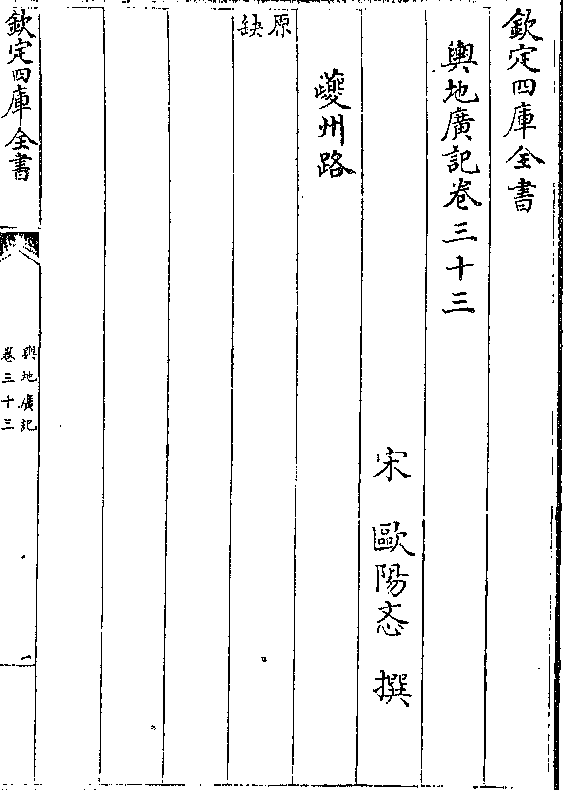 欽定四庫全書
輿地廣記卷三十三
宋 歐陽忞 撰
夔州路
原缺
欽定四庫全書
輿地廣記
卷三十三